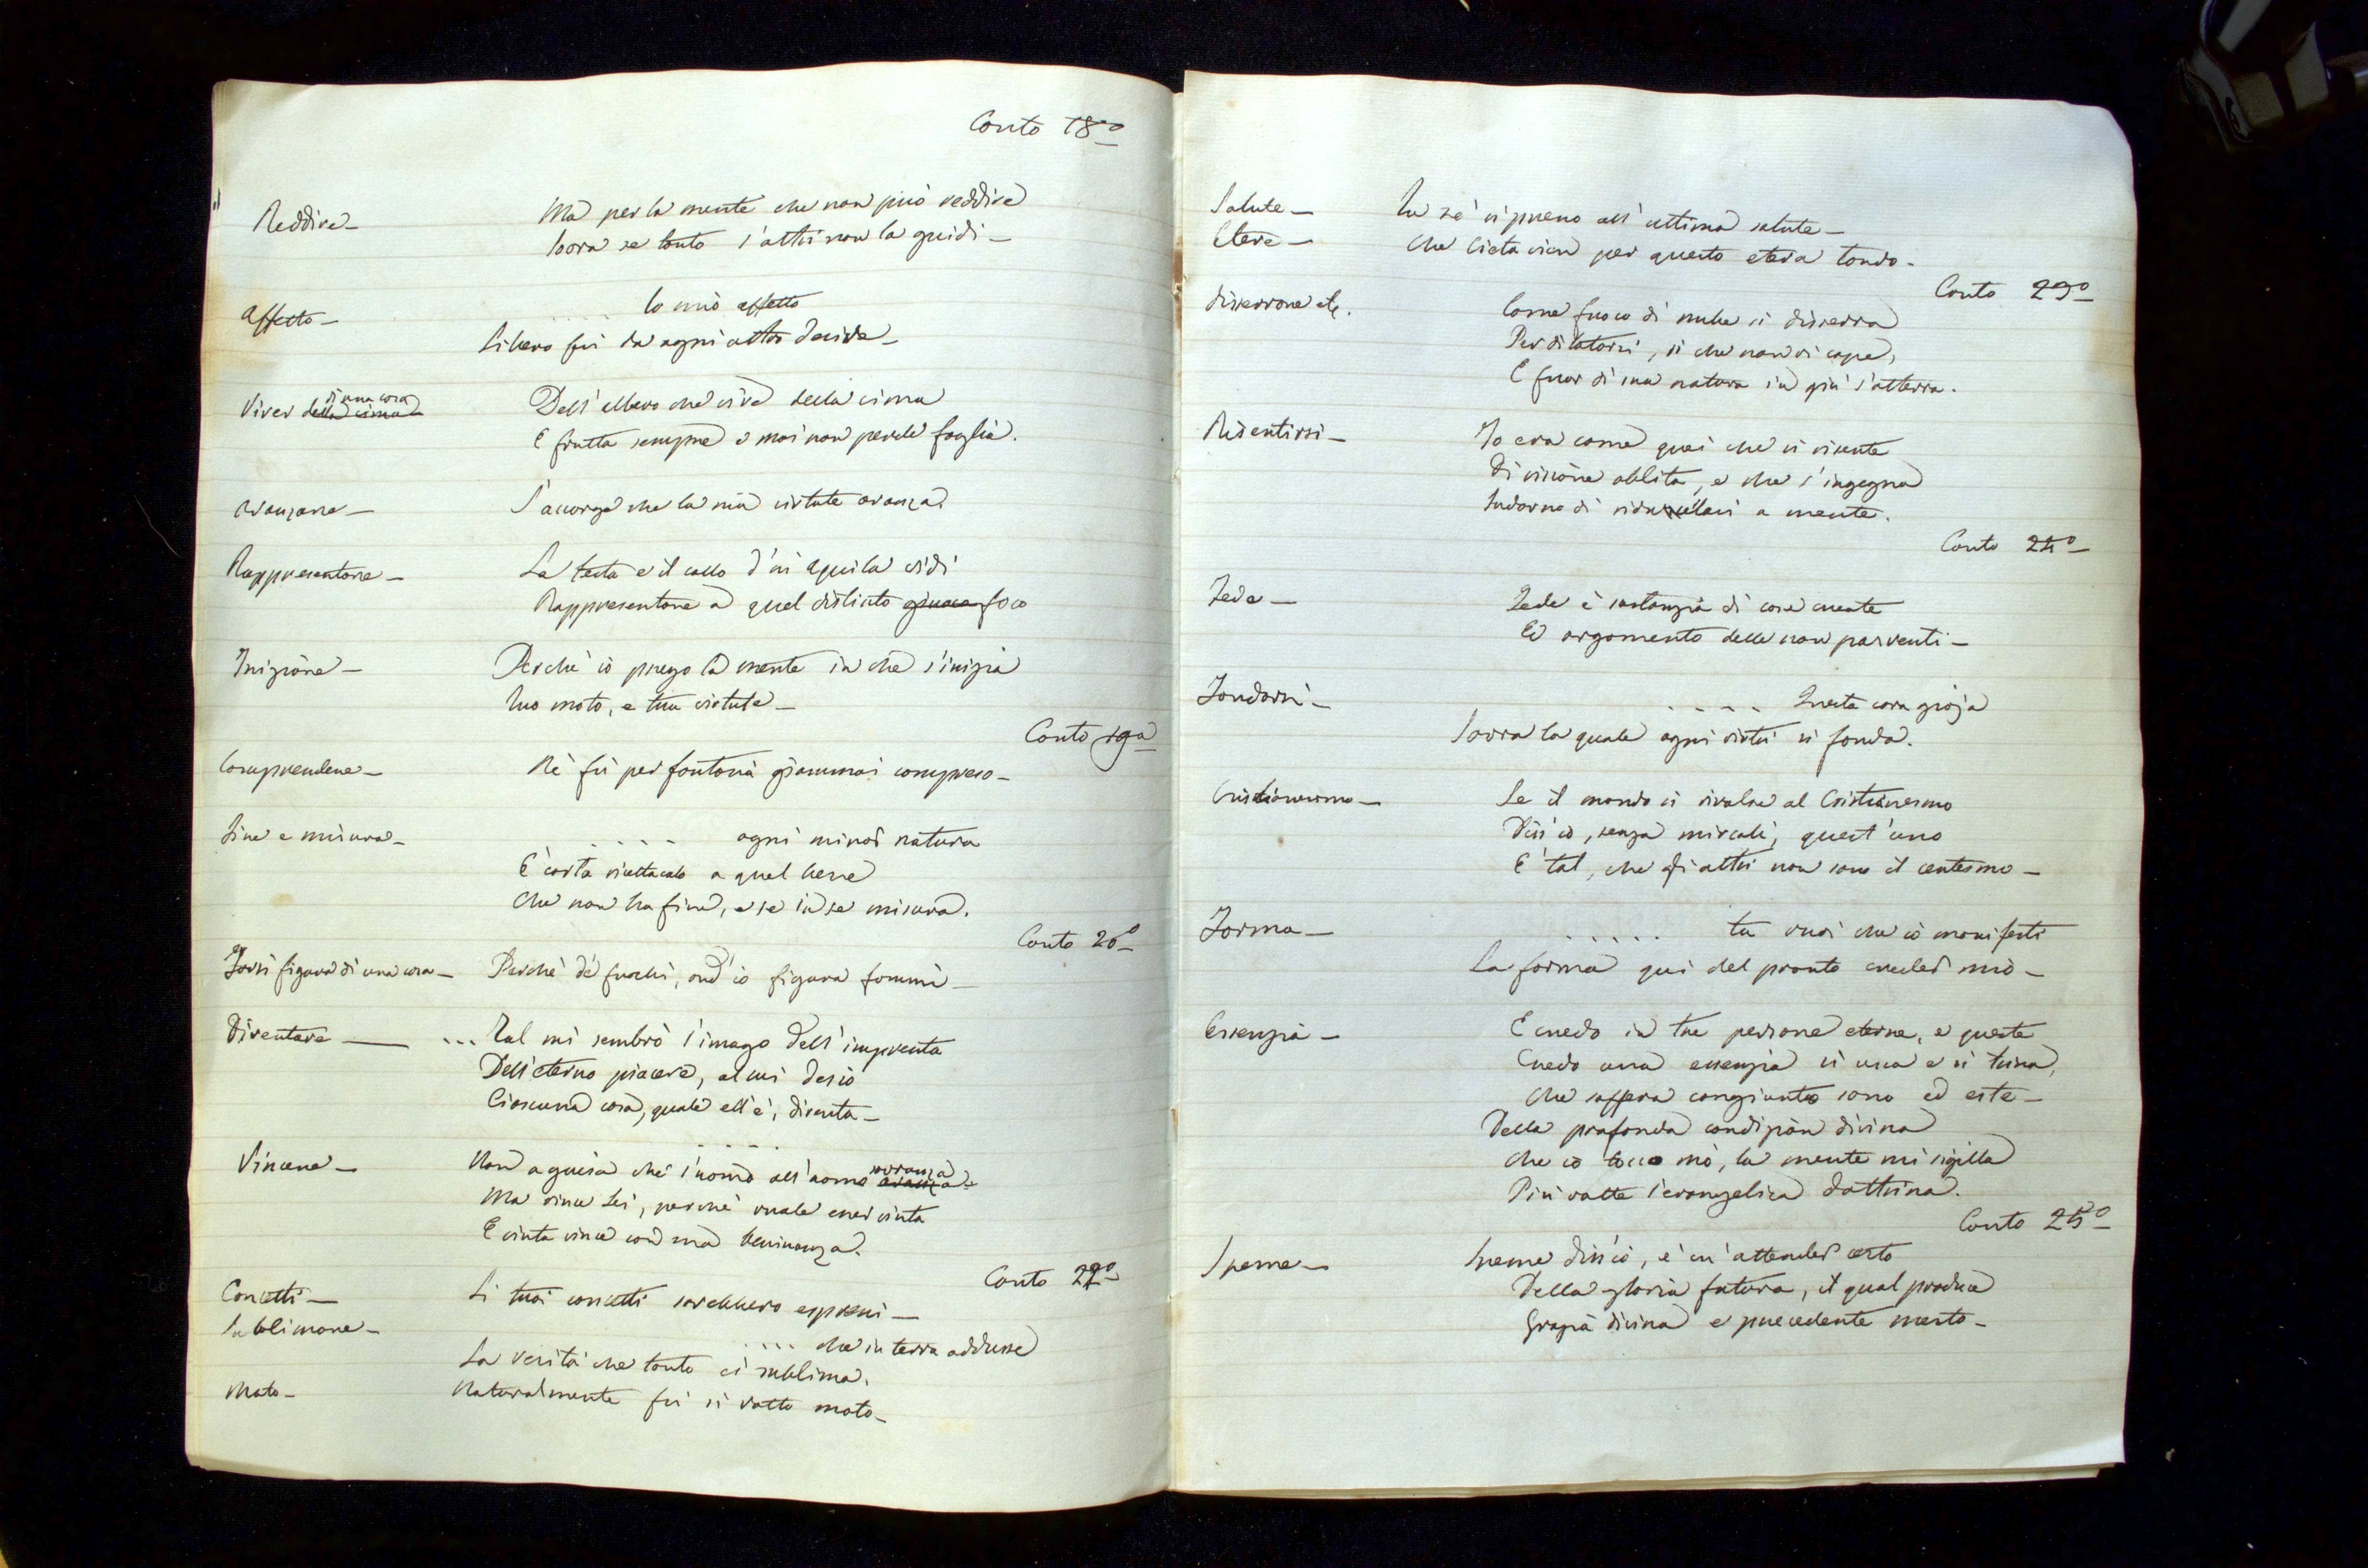 Canto 18º
Reddire –
Ma per la mente che non può reddire
Sovra se tanto s'altri non la guidi –
Affetto –
. . . . . lo mio affetto
Libero fu da ogni altro desire –
Viver della cima
di una cosa
Dell'albero che vive della cima
E frutta sempre e mai non perde foglia.
Avanzare –
S'accorge che la sua virtute avanza.
Rappresentare –
La testa e il collo d'un'aquila vidi
Rappresentare a quel distinto foco
Iniziare –
Perchè io prego la mente in che s'inizia
Tuo moto, e tua virtute –
Canto 19º
Comprendere –
Nè fu per fantasia giammai compreso –
Fine e misura –
. . . . ogni minor natura
E' corto ricettacolo a quel bene
Che non ha fine, e se in se misura.
Canto 20º
Farsi figura di una cosa –
Perchè de' fuochi, ond'io figura fommi –
Diventare –
... Tal mi sembrò l'imago dell'imprenta
Dell'eterno piacere, al cui desio
Ciascuna cosa, quale ell'è, diventa –
. . . . .
Vincere –
Non a guisa che l'uomo all'uomo avanza
sovranza
Ma vince lei, perchè vuole esser vinta
E vinta vince con sua beninanza.
Canto 22º
Concetti –
Li tuoi concetti sarebbero espressi –
Sublimare –
. . . . che in terra addusse
La verità che tanto ci sublima.
Moto –
Naturalmente fu sì ratto moto –
Salute –
Tu se' sì presso all'ultima salute –
Etere –
Che lieta vien per questo etera tondo –
Canto 23º
Disserrare etc.
Come fuoco di nube si disserra
Per dilatarsi, sì che non vi cape,
E fuor di sua natura in giù s'atterra.
Risentirsi –
Io era come quei che si risente
Di visione oblita, e che s'ingegna
Indarno di ridurlasi a mente.
Canto 24º
Fede –
Fede è sustanzia di cose sperate
Ed argomento delle non parventi –
Fondarsi –
. . . . Questa cara gioja
Sovra la quale ogni virtù si fonda.
Cristianesmo –
Se il mondo si rivolse al Cristianesmo
Diss'io, senza miracoli, quest'uno
E' tal, che gli altri non sono il centesmo –
Forma –
. . . . . tu vuoi che io manifesti
La forma qui del pronto creder mio –
Essenzia –
E credo in tre persone eterne, e queste
Credo una essenzia sì una e sì trina,
Che soffera congiunto sono ed este –
Della profonda condizion divina
Che io tocco mò, la mente mi sigilla
Più volte l'evangelica dottrina.
Canto 25º
Speme –
Speme diss'io, è un'attender certo
Della gloria futura, il qual produce
Grazia divina e precedente merto –